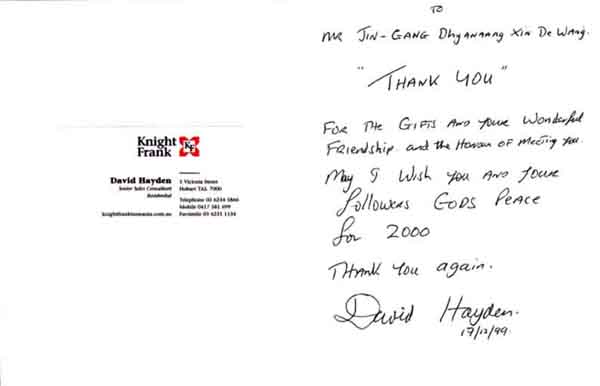 Knight
Frank
KF
David Hayden
Senior Sales Consultant
Residential
knightfranktasmania.com.au
5 Victoria Street
Hobart TAS. 7000
Telephone 03 6234 5866
Mobile 0417 581 699
Facsimile 03 6231 1134
TO
MR JIN-GANG Dhyanaang Xin De Wang.
"THANK YOU"
FOR THE GIFTS AND YOUR Wonderful
Friendship. and the Honour OF Meeting you.
May I Wish You AND YOUR
followers GODS PEACE
for 2000
THANK You again.
David Hayden.
17/12/99.